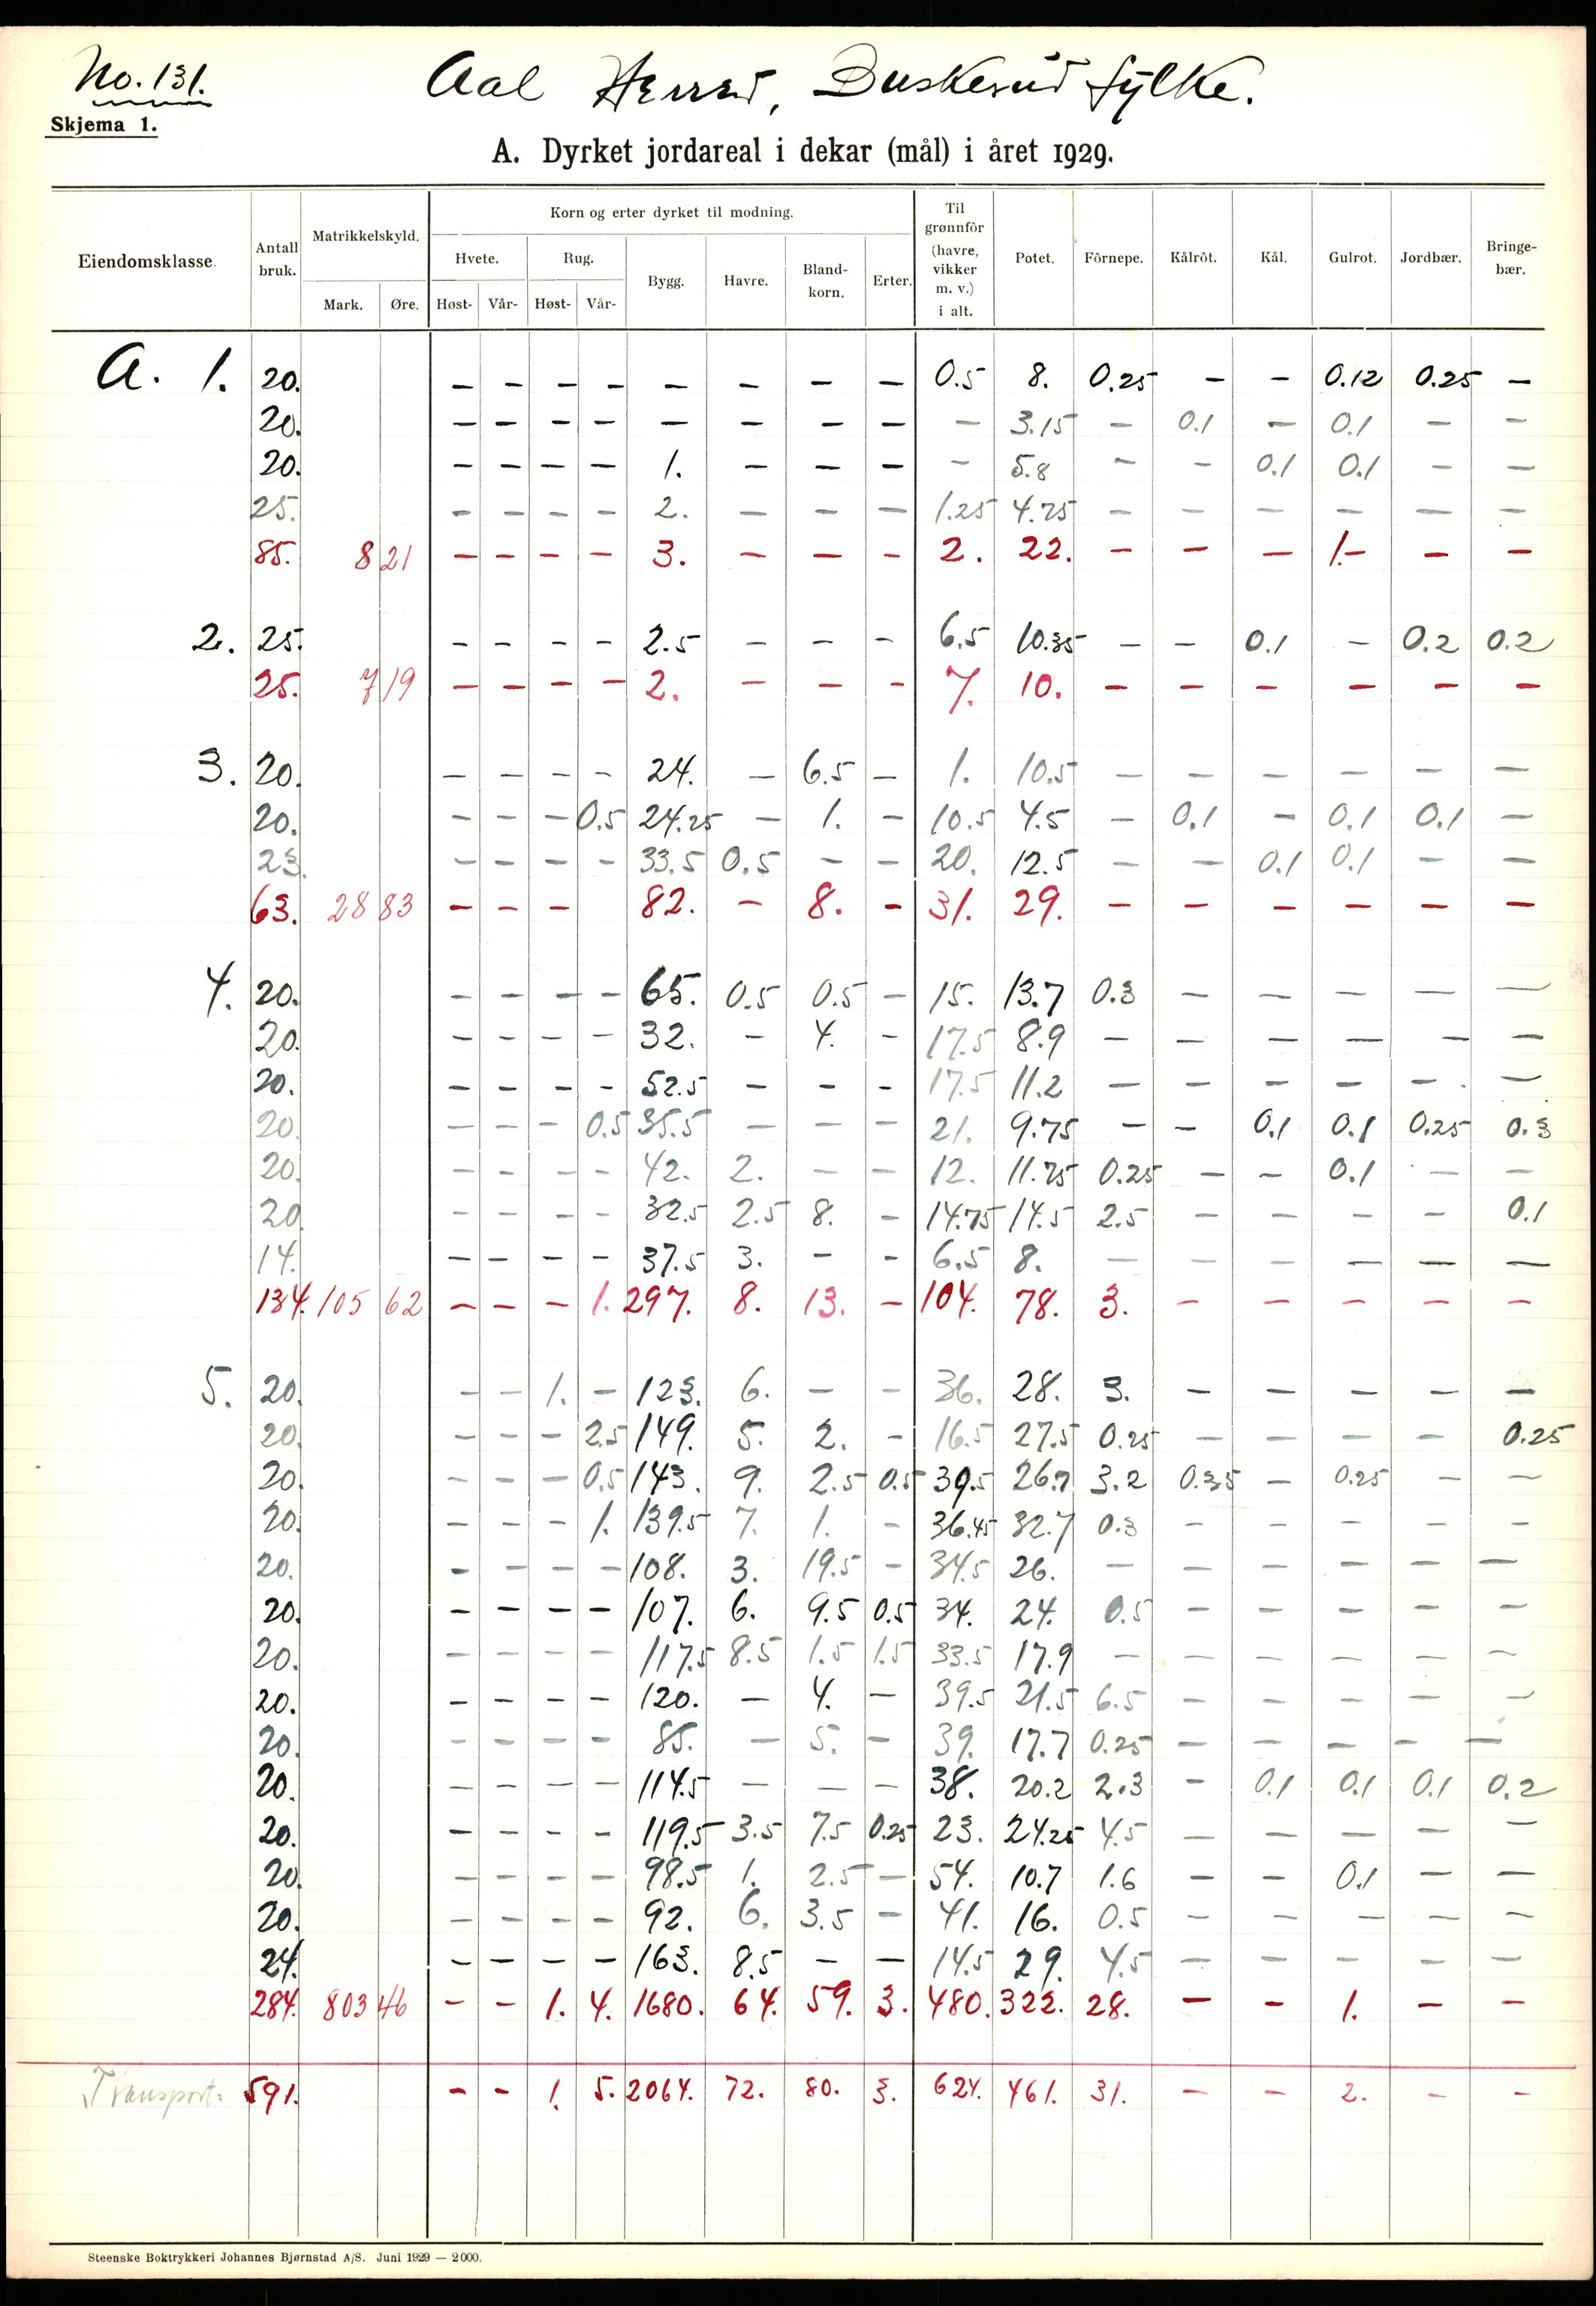 No. 131.
Aal Herred, Buskerud fylke.
Skjema 1.
A. Dyrket jordareal i dekar (mål) i året 1929.
Eiendomsklasse. Antall bruk. Matrikkelskyld. Mark. Øre. Korn og erter dyrket til modning. Hvete. Høst- Vår- Rug. Høst- Vår- Bygg. Havre. Bland-korn. Erter. Til grønnfôr (havre, vikker m. v.) i alt. Potet. Fôrnepe. Kålrôt. Kål. Gulrot. Jordbær. Bringe-bær.
A. 1. 20. — — — — — — — — 0.5 8. 0.25 — — 0.12 0.25 —
20. — — — — — — — — — 3.15 — 0.1 — 0.1 — —
20. — — — — 1. — — — — 5.8 — — 0.1 0.1 — —
25. — — — — 2. — — — 1.25 4.75 — — — — — —
85. 8 21 — — — — 3. — — — 2. 22. — — — 1.– — —
2. 25. — — — — 2.5 — — — 6.5 10.35 — — 0.1 — 0.2 0.2
25. 7 19 — — — — 2. — — — 7. 10. — — — — — —
3. 20. — — — — 24. — 6.5 — 1. 10.5 — — — — — —
20. — — — 0.5 24.25 — 1. — 10.5 4.5 — 0.1 — 0.1 0.1 —
23. — — — — 33.5 0.5 — — 20. 12.5 — — 0.1 0.1 — —
63. 28 83 — — — 82. — 8. — 31. 29. — — — — — —
4. 20. — — — — 65. 0.5 0.5 — 15. 13.7 0.3 — — — — —
20. — — — — 32. — 4. — 17.5 8.9 — — — — — —
20. — — — — 52.5 — — — 17.5 11.2 — — — — — —
20. — — — 0.5 35.5 — — — 21. 9.75 — — 0.1 0.1 0.25 0.3
20. — — — — 42. 2. — — 12. 11.75 0.25 — — 0.1 — —
20. — — — — 32.5 2.5 8. — 14.75 14.5 2.5 — — — — 0.1
14. — — — — 37.5 3. — — 6.5 8. — — — — — —
134. 105 62 — — — 1. 297. 8. 13. — 104. 78. 3. — — — — —
5. 20. — — 1. — 123. 6. — — 36. 28. 3. — — — — —
20. — — — 2.5 149. 5. 2. — 16.5 27.5 0.25 — — — — 0.25
20. — — — 0.5 143. 9. 2.5 0.5 39.5 26.7 3.2 0.35 — 0.25 — —
20. — — — 1. 139.5 7. 1. — 36.45 32.7 0.3 — — — — —
20. — — — — 108. 3. 19.5 — 34.5 26. — — — — — —
20. — — — — 107. 6. 9.5 0.5 34. 24. 0.5 — — — — —
20. — — — — 117.5 8.5 1.5 1.5 33.5 17.9 — — — — — —
20. — — — — 120. — 4. — 39.5 21.5 6.5 — — — — —
20. — — — — 85. — 5. — 39. 17.7 0.25 — — — — —
20. — — — — 114.5 — — — 38. 20.2 2.3 — 0.1 0.1 0.1 0.2
20. — — — — 119.5 3.5 7.5 0.25 23. 24.25 4.5 — — — — —
20. — — — — 98.5 1. 2.5 — 54. 10.7 1.6 — — 0.1 — —
20. — — — — 92. 6. 3.5 — 41. 16. 0.5 — — — — —
24. — — — — 163. 8.5 — — 14.5 29. 4.5 — — — — —
284. 803 46 — — 1. 4. 1680. 64. 59. 3. 480. 322. 28. — — 1. — —
Transport: 591. — — 1. 5. 2064. 72. 80. 3. 624. 461. 31. — — 2. — —
Steenske Boktrykkeri Johannes Bjørnstad A/S. Juni 1929 — 2000.